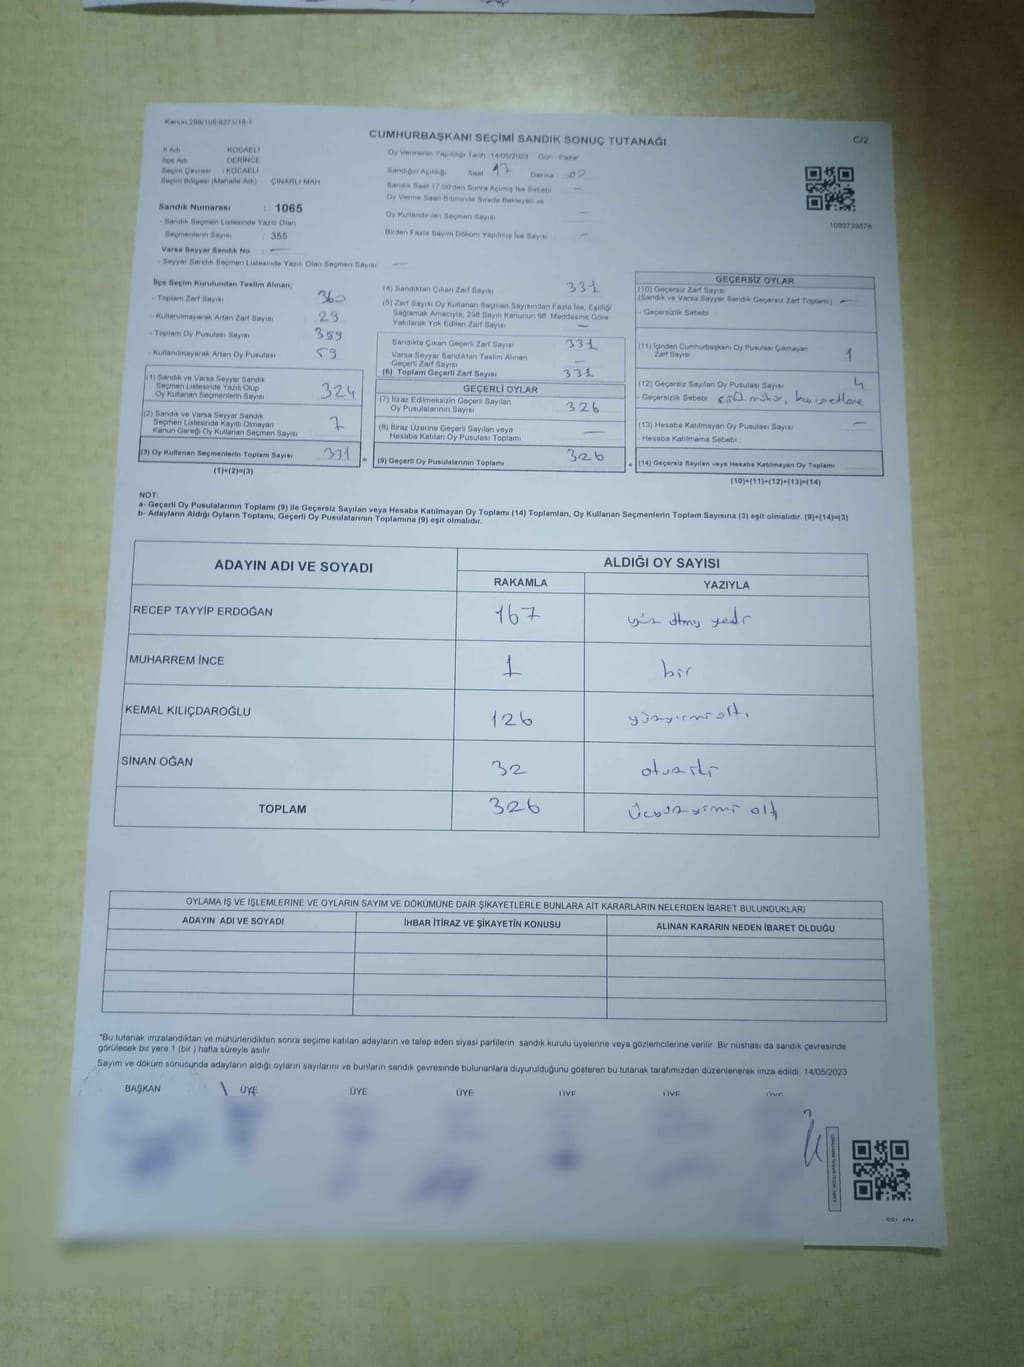 Kanun:298/105,6271/18-1
CUMHURBAŞKANI SEÇİMİ SANDIK SONUÇ TUTANAĞI
C/2
İl Adı KOCAELİ
İlçe Adı DERİNCE
Seçim Çevresi : KOCAELİ
Seçim Bölgesi (Mahalle Adı) : ÇINARLI MAH
Sandık Numarası : 1065
- Sandık Seçmen Listesinde Yazılı Olan
Seçmenlerin Sayısı : 355
Varsa Seyyar Sandık No : —
- Seyyar Sandık Seçmen Listesinde Yazılı Olan Seçmen Sayısı : —
Oy Vermenin Yapıldığı Tarih : 14/05/2023 Gün : Pazar
Sandığın Açıldığı Saat 17 Dakika : 02
Sandık Saat 17.00'den Sonra Açılmış İse Sebebi —
Oy Verme Saati Bitiminde Sırada Bekleyen ve
Oy Kullandırılan Seçmen Sayısı —
Birden Fazla Sayım Döküm Yapılmış İse Sayısı —
1093733578
İlçe Seçim Kurulundan Teslim Alınan;
- Toplam Zarf Sayısı 360
- Kullanılmayarak Artan Zarf Sayısı 29
- Toplam Oy Pusulası Sayısı 389
- Kullanılmayarak Artan Oy Pusulası 59
(1) Sandık ve Varsa Seyyar Sandık
Seçmen Listesinde Yazılı Olup
Oy Kullanan Seçmenlerin Sayısı 324
(2) Sandık ve Varsa Seyyar Sandık
Seçmen Listesinde Kayıtlı Olmayan
Kanun Gereği Oy Kullanan Seçmen Sayısı 7
(3) Oy Kullanan Seçmenlerin Toplam Sayısı 331 =
(1)+(2)=(3)
(4) Sandıktan Çıkan Zarf Sayısı 331
(5) Zarf Sayısı Oy Kullanan Seçmen Sayısından Fazla İse, Eşitliği
Sağlamak Amacıyla, 298 Sayılı Kanunun 98. Maddesine Göre
Yakılarak Yok Edilen Zarf Sayısı —
Sandıkta Çıkan Geçerli Zarf Sayısı 331
Varsa Seyyar Sandıktan Teslim Alınan
Geçerli Zarf Sayısı —
(6) Toplam Geçerli Zarf Sayısı 331
GEÇERLİ OYLAR
(7) İtiraz Edilmeksizin Geçerli Sayılan
Oy Pusulalarının Sayısı 326
(8) İtiraz Üzerine Geçerli Sayılan veya
Hesaba Katılan Oy Pusulası Toplamı —
(9) Geçerli Oy Pusulalarının Toplamı 326 +
GEÇERSİZ OYLAR
(10) Geçersiz Zarf Sayısı
(Sandık ve Varsa Seyyar Sandık Geçersiz Zarf Toplamı) —
- Geçersizlik Sebebi
(11) İçinden Cumhurbaşkanı Oy Pusulası Çıkmayan
Zarf Sayısı 1
(12) Geçersiz Sayılan Oy Pusulası Sayısı 4
- Geçersizlik Sebebi çift mühür,
(13) Hesaba Katılmayan Oy Pusulası Sayısı —
- Hesaba Katılmama Sebebi :
(14) Geçersiz Sayılan veya Hesaba Katılmayan Oy Toplamı
(10)+(11)+(12)+(13)=(14)
NOT:
a- Geçerli Oy Pusulalarının Toplamı (9) ile Geçersiz Sayılan veya Hesaba Katılmayan Oy Toplamı (14) Toplamları, Oy Kullanan Seçmenlerin Toplam Sayısına (3) eşit olmalıdır. (9)+(14)=(3)
b- Adayların Aldığı Oyların Toplamı, Geçerli Oy Pusulalarının Toplamına (9) eşit olmalıdır.
ADAYIN ADI VE SOYADI ALDIĞI OY SAYISI
RAKAMLA YAZIYLA
RECEP TAYYİP ERDOĞAN 167 yüz altmış yedi
MUHARREM İNCE 1 bir
KEMAL KILIÇDAROĞLU 126 yüzyirmi altı
SİNAN OĞAN 32 otuz iki
TOPLAM 326 üçyüzyirmi altı
OYLAMA İŞ VE İŞLEMLERİNE VE OYLARIN SAYIM VE DÖKÜMÜNE DAİR ŞİKAYETLERLE BUNLARA AİT KARARLARIN NELERDEN İBARET BULUNDUKLARI
ADAYIN ADI VE SOYADI İHBAR İTİRAZ VE ŞİKAYETİN KONUSU ALINAN KARARIN NEDEN İBARET OLDUĞU
"Bu tutanak imzalandıktan ve mühürlendikten sonra seçime katılan adayların ve talep eden siyasi partilerin sandık kurulu üyelerine veya gözlemcilerine verilir .Bir nüshası da sandık çevresinde
görülecek bir yere 1 (bir ) hafta süreyle asılır.
Sayım ve döküm sonucunda adayların aldığı oyların sayılarını ve bunların sandık çevresinde bulunanlara duyurulduğunu gösteren bu tutanak tarafımızdan düzenlenerek imza edildi. 14/05/2023
BAŞKAN ÜYE ÜYE ÜYE ÜYE ÜYE ÜYE